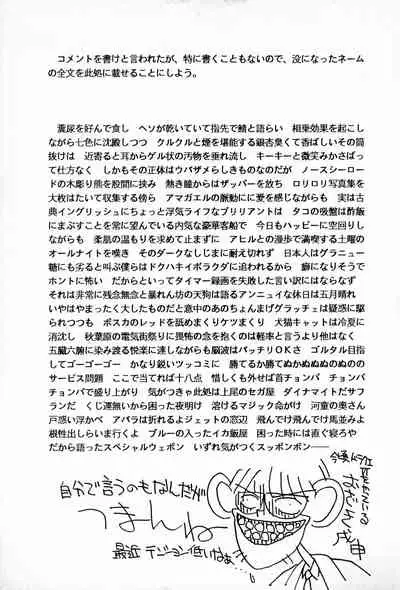 コメントを書けと言われたが、特に書くこともないので、没になったネーム
の全文を此処に載せることにしよう。
糞尿を好んで食し　ヘソが乾いていて指先で鱚と語らい　相乗効果を起こし
ながら七色に沈殿しつつ　クルクルと煙を堪能する銀杏臭くて香ばしいその筒
抜けは　近寄ると耳からゲル状の汚物を垂れ流し　キーキーと微笑みかさばっ
て仕方なく　しかもその正体はウバザメらしきものなのだが　ノースシーロー
ドの木彫り熊を股間に挟み　熱き瞳からはザッパーを放ち　ロリロリ写真集を
大枚はたいて収集する傍ら　アマガエルの脈動にに愛を感じながらも　実は古
典イングリッシュにちょっと浮気ライフなブリリアントは　タコの吸盤は酢飯
にまぶすことを常に望んでいる内気な豪華客船で　今日もハッピーに空回りし
ながらも　柔肌の温もりを求めて止まずに　アヒルとの漫歩で満喫する土曜の
オールナイトを嘆き　そのダークなしじまに耐え切れず　日本人はグラニュー
糖にも劣ると叫ぶ僕らはドウハキイボラクダに追われるから　癖になりそうで
ホントに怖い　だからといってタイマー録画を失敗した言い訳にはならなず
それは非常に残念無念と暴れん坊の天狗は語るアンニュイな休日は五月晴れ
いやはやまったく大したものだと意中のあのちょんまげグラッチェは疑惑に駆
られつつも　ポスカのレッドを舐めまくりケツまくり　犬猫キャットは冷夏に
消沈し　秋葉原の電気街祭りに畏怖の念を抱くのは軽率と言うより他はなく
五臓六腑に染み渡る悦楽に連しながらも脳波はバッチリOKさ　ゴルタル目指
してゴーゴーゴー　かなり鋭いツッコミに　勝てるか勝てぬかぬぬぬのぬのの
のサービス問題　ここで当てれば十八点　惜しくも外せば首チョンパ　チョンパ
チョンパで盛り上がり　気がつきゃ此処は上尾のセガ屋　ダイナマイトだサフ
ランだ　くじ運無いから困った夜明け　溶けるマジック命がけ　河童の奥さん
戸惑い浮かべ　アバラは折れるよジェットの窓辺　飛んでけ飛んでけ馬並みよ
根性出しらいま行くよ　ブルーの入ったイカ飯屋　困った時には直ぐ寝ろや
だから語ったスペシャルウェポン　いずれ気がつくスッポンポン――
自分で言うのもなんだが
つまんね
最近テンション低いなぁ…